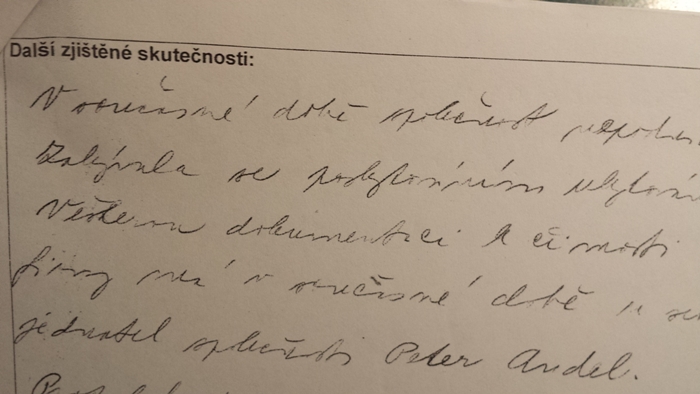 Další zjištěné skutečnosti:
V současné době společnost
Zabývala se poskytováním
Veškerou dokumentaci k činnosti
firmy má v současné době u
jednatel společnosti Peter Andel.